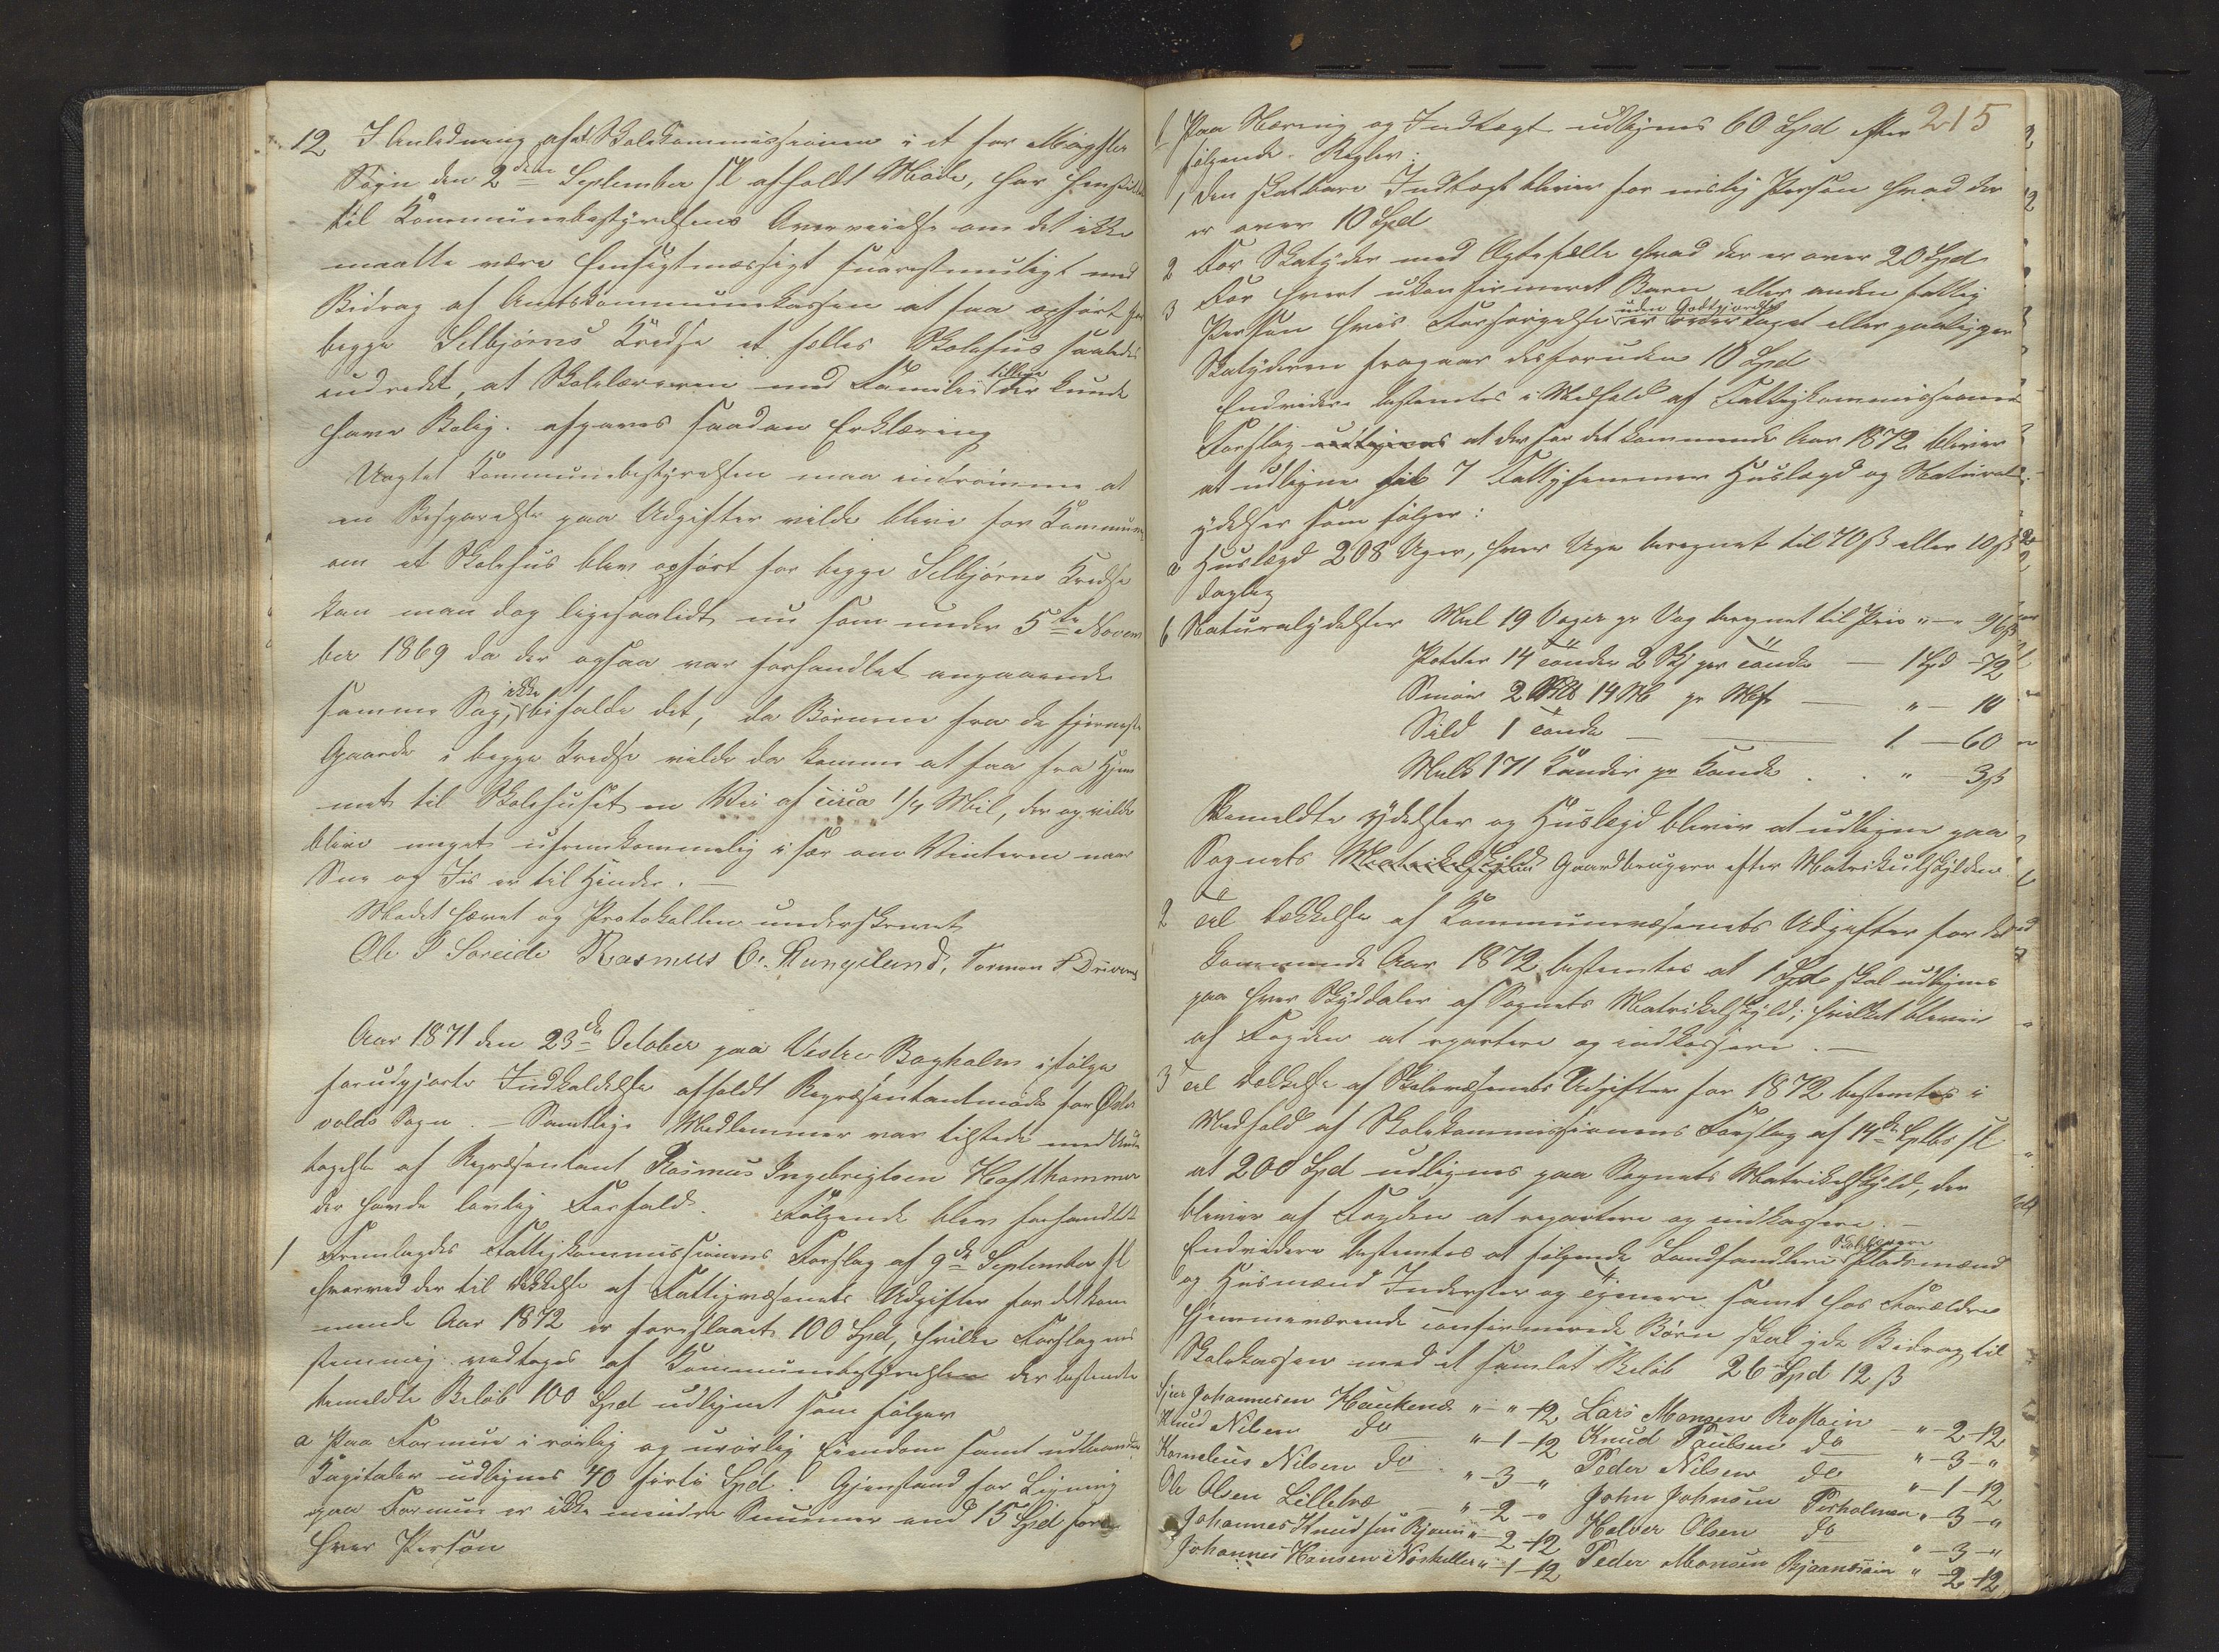 12 I Anledning af at Skolekommissionen i et for Møgster
Sogn den 2den September sl afholdt Møde, har henstillet
til Kommunebestyrelsens Overveielse om det ikke
maatte være hensigtmæssigt snarestmuligt med
Bidrag af Amtskommunekassen at faa opført for
begge Selbjørns Kredse et fælles Skolehus saaledes
indredet, at Skolelæreren med Familie tillige der kunde
have Bolig. afgaves saadan Erklæring
Uagtet Kommunebestyrelsen maa indrømme at
en Besparelse paa Udgifter vilde blive for Kommunen
om et Skolehus blev opført for begge Selbjørns Kredse
kan man dog ligesaalidt nu som under 5te Novem
ber 1869 da der ogsaa var forhandlet angaaende
samme Sag, ikke bifalde det, da Børnene fra de fjerneste
Gaarde i begge Kredse vilde da komme at faa fra Hjem
met til Skolehuset en Vei af circa 1/4 Mil, der og vilde
blive meget ufremkommelig især om Vinteren naar
Sne og Is er til Hinder. —
Mødet hævet og Protokollen underskrevet
Ole P Soreide Rasmus O. Kungslund, Tormon
Aar 1871 den 23de October paa Vestre Bagholm ifølge
forudgjorte Indkaldelse afholdt Repræsentantmøde for Øste
volds Sogn. — Samtlige Medlemmer var tilstede med Und
tagelse af Repræsentant Rasmus Ingebrigtsen Hafthammer
der havde lovlig Forfald. Følgende blev forhandlet
1 Fremlagdes Fattigkommissionens Forslag af 9de September sl
hvorved der til Dækkelse af Fattigvæsenets Udgifter for det kom
mende Aar 1872 er foreslaaet 100 Spd, hvilke Forslag een
stemmig vedtoges af Kommunebestyrelsen der bestemte
bemeldte Beløb 100 Spd udlignet som følger
a Paa Formue i rørlig og urørlig Eiendom samt udlaante
Kapitaler udlignes 40 førti Spd. Gjenstand for Ligning
paa Formue er ikke mindre Summer end 15 Spd for
hver Person
215
b Paa Næring og Indtægt udlignes 60 Spd efter
følgende Regler:
1 Den skatbare Indtægt bliver for enslig Person hvad der
er over 10 Spd
2 For Skatyder med Ægtefælle hvad der er over 20 Spd
3 For hvert ukonfirmeret Barn eller anden fattig
Person hvis Forsørgelse uden Godtgjørelse er overtaget eller paaligger
Skatyderen fragaar desforuden 10 Spd
Endvidere bestemtes i Medhold af Fattigkommissionens
Forslag udlignes at der for det kommende Aar 1872 bliver
at udligne til 7 Fattiglemmer Huslægd og Natural
ydelser som følger:
a Huslægd 208 Uger, hver Uge beregnet til 70 ß eller 10 ß
daglig
b Naturalydelser Mel 19 Voger pr Vog beregnet til Pris " — " 96 ß
Poteter 14 Tønder 2 Skj per Tønde — 1 Spd - 72
Smør 2 14 M pr — " — 10
Sild 1 Tønde — 1 — 60
Melk 171 Kander pr Kande . . " — 3 ß
Bemeldte ydelser og Huslegd bliver at udligne paa
Sognets Matrikelskyld Gaardbrugere efter Matrikulskylden
2 Til Dækkelse af Kommunevæsenets Udgifter for det
kommende Aar 1872 bestemtes at 1 Spd skal udlignes
paa hver Skylddaler af Sognets Matrikelskyld; hvilket bliver
af Fogden at repartere og indkassere. —
3 Til Dækkelse af Skolevæsenets Udgifter for 1872 bestemtes i
Medhold af Skolekommissionens Forslag af 14de Septbr sl
at 200 Spd udlignes paa Sognets Matrikelskyld, der
bliver af Fogden at repartere og indkassere. —
Endvidere bestemtes at følgende Landhandlere Skolelærere Pladsmænd
og Husmænd Inderster og tjenere samt hos Forældre
hjemmeværende confirmerede Børn skal yde Bidrag til
Skolekassen med et samlet Beløb 26 Spd 12 ß
Sjur Johannesen Haukenæs " - " - 12 Lars Monsen Rostøen " - 2 - 12
Knud Nilsen do " - 1 - 12 Knud Paulsen do " - 3 - "
Kornelius Nilsen do " - 3 - " Peder Nilsen do " - 1 - 12
Ole Olsen Lilletræ " - 2 - " John Johnsen Perholmen " - 3 - "
Johannes Knudsen " - 2 - 12 Halvor Olsen do " - 3 - "
Johannes Hansen Nøshellen " - 1 - 12 Peder Monsen Bjaanesøen " - 2 - 12